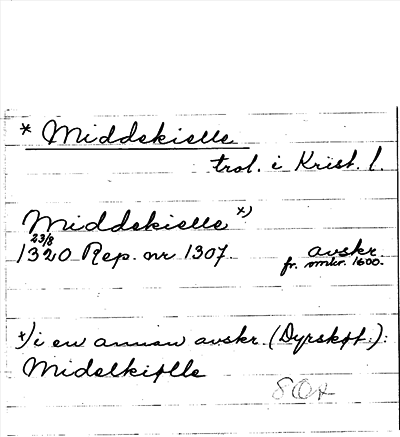 * Middskielle
trol. i Krist. l.
Middskielle x)
23/8
1320 Rep. nr 1307. avskr.
fr. omkr. 1600.
x) i en annan avskr. (Dyrskjøt.):
Midelkiølle
SOä